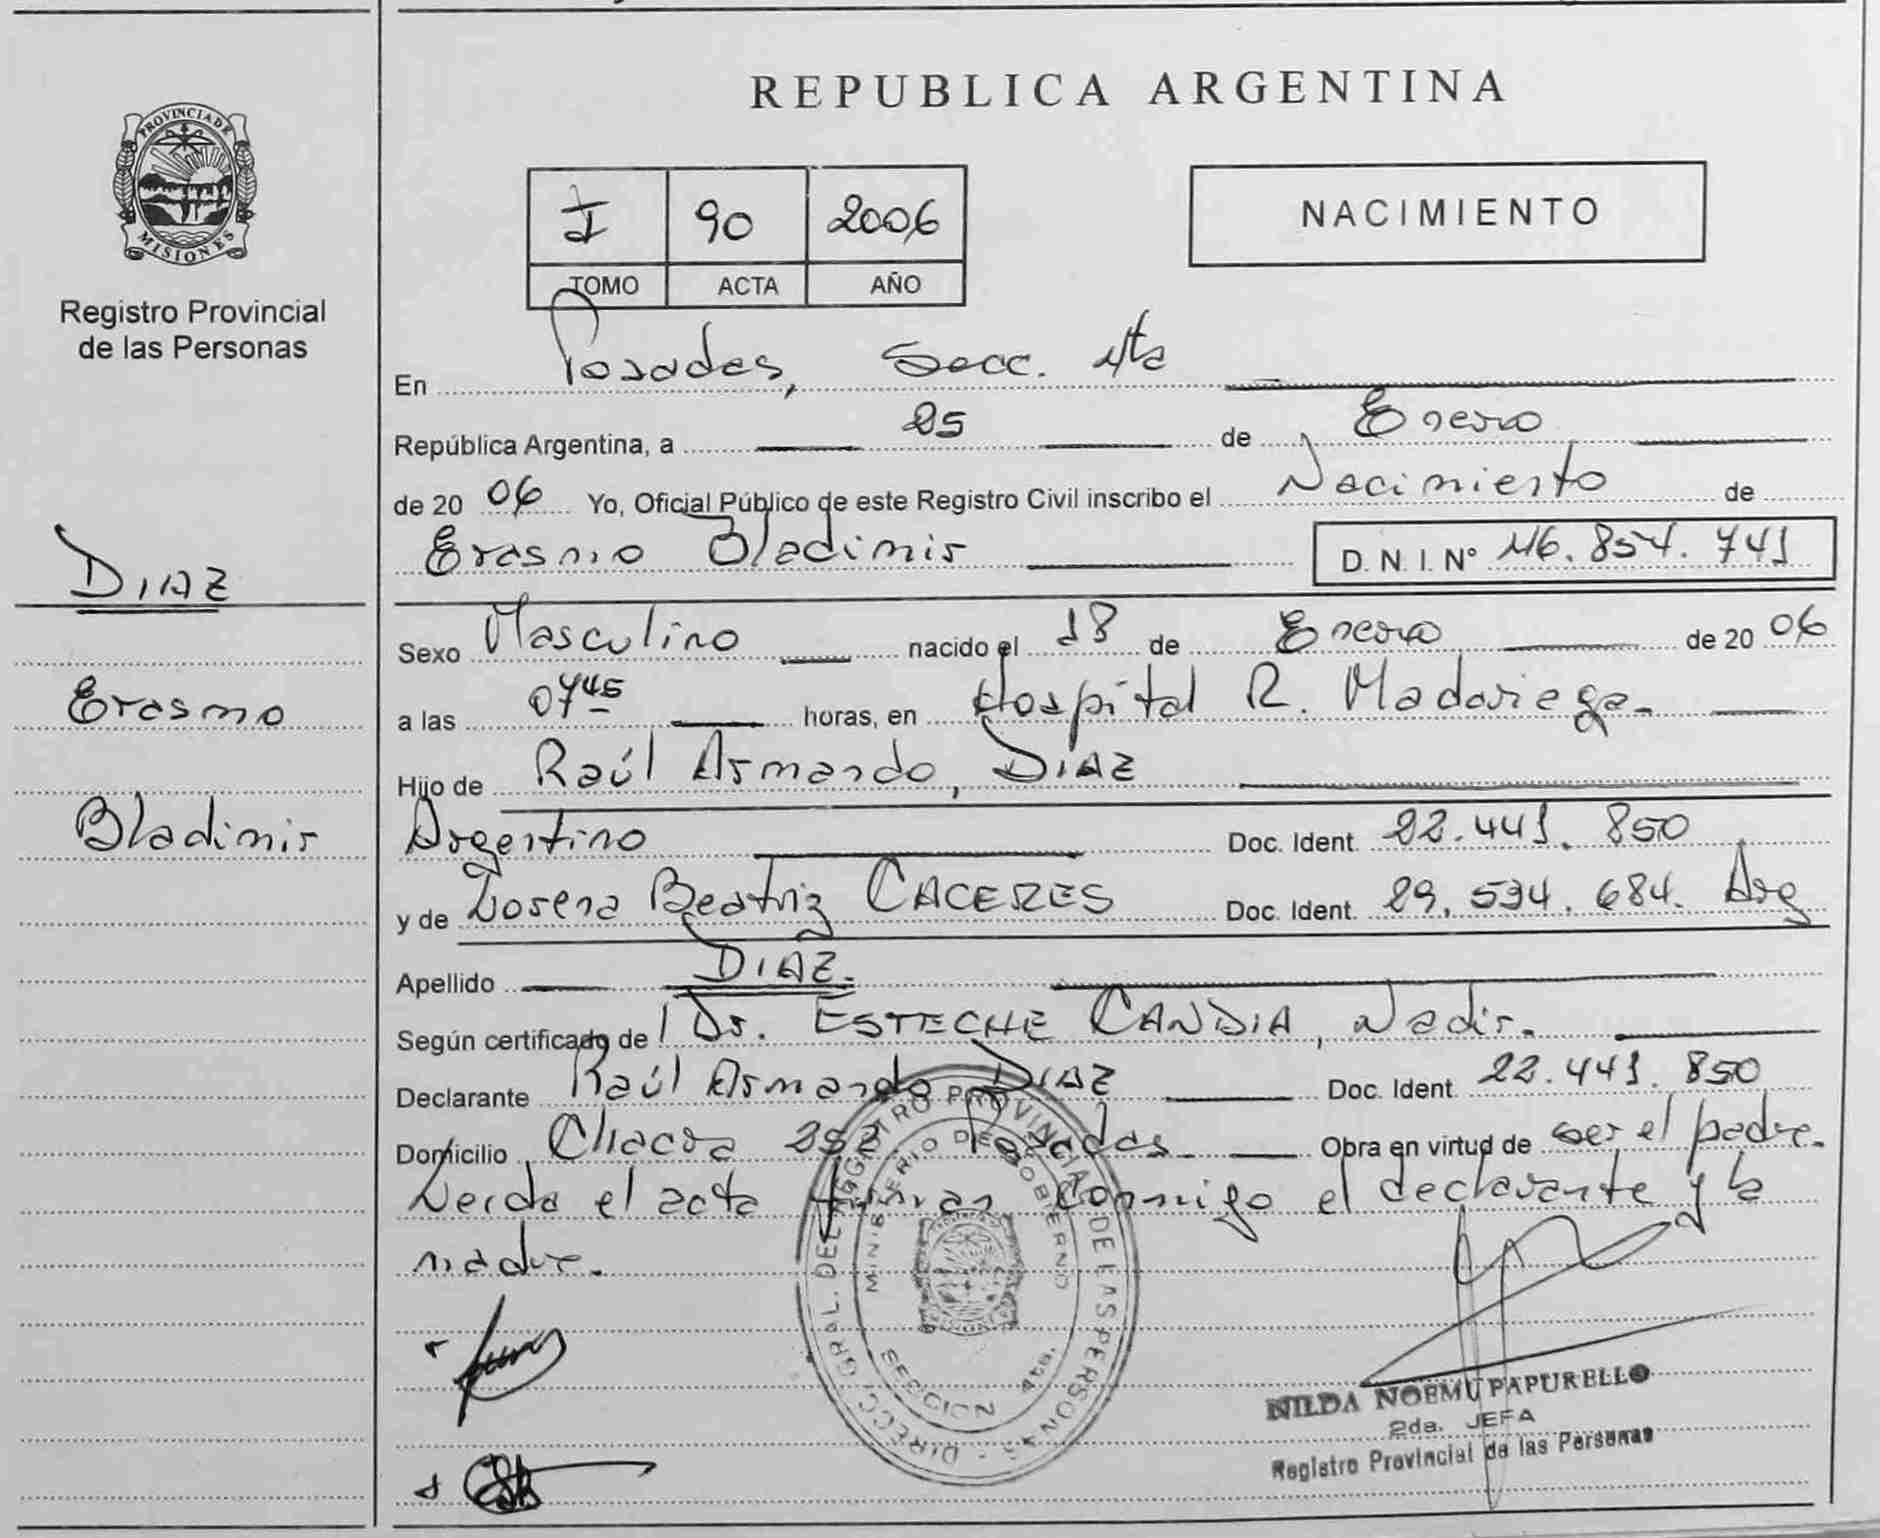 PROVINCIA DE
MISIONES
Registro Provincial
de las Personas
DIAZ
Erasmo
Bladimir
REPUBLICA ARGENTINA
I 90 2006
TOMO ACTA AÑO
NACIMIENTO
En Posadas, Secc. 4ta
República Argentina, a 25 de Enero
de 20 06 Yo, Oficial Público de este Registro Civil inscribo el Nacimiento de
Erasmo Bladimir D. N. I. N° 46.854.741
Sexo Masculino nacido el 18 de Enero de 20 06
a las 07 45 horas, en Hospital R. Madariaga.
Hijo de Raúl Armando, DIAZ
Argentino Doc. Ident. 22.441.850
y de Lorena Beatriz CACERES Doc. Ident. 29.534.684. Arg
Apellido DIAZ.
Según certificado de Dr. ESTECHE CANDIA, Nadir.
Declarante Raúl Armando DIAZ Doc. Ident. 22.441.850
Domicilio Chacra 252 Posadas. Obra en virtud de ser el padre.
Leida el acta firman conmigo el declarante y la
madre.
DIRECC. GRAL. DEL REGISTRO PROVINCIAL DE LAS PERSONAS
MINISTERIO DE GOBIERNO
SECCION 4ta.
NILDA NOEMI PAPURELLO
2da. JEFA
Registro Provincial de las Personas